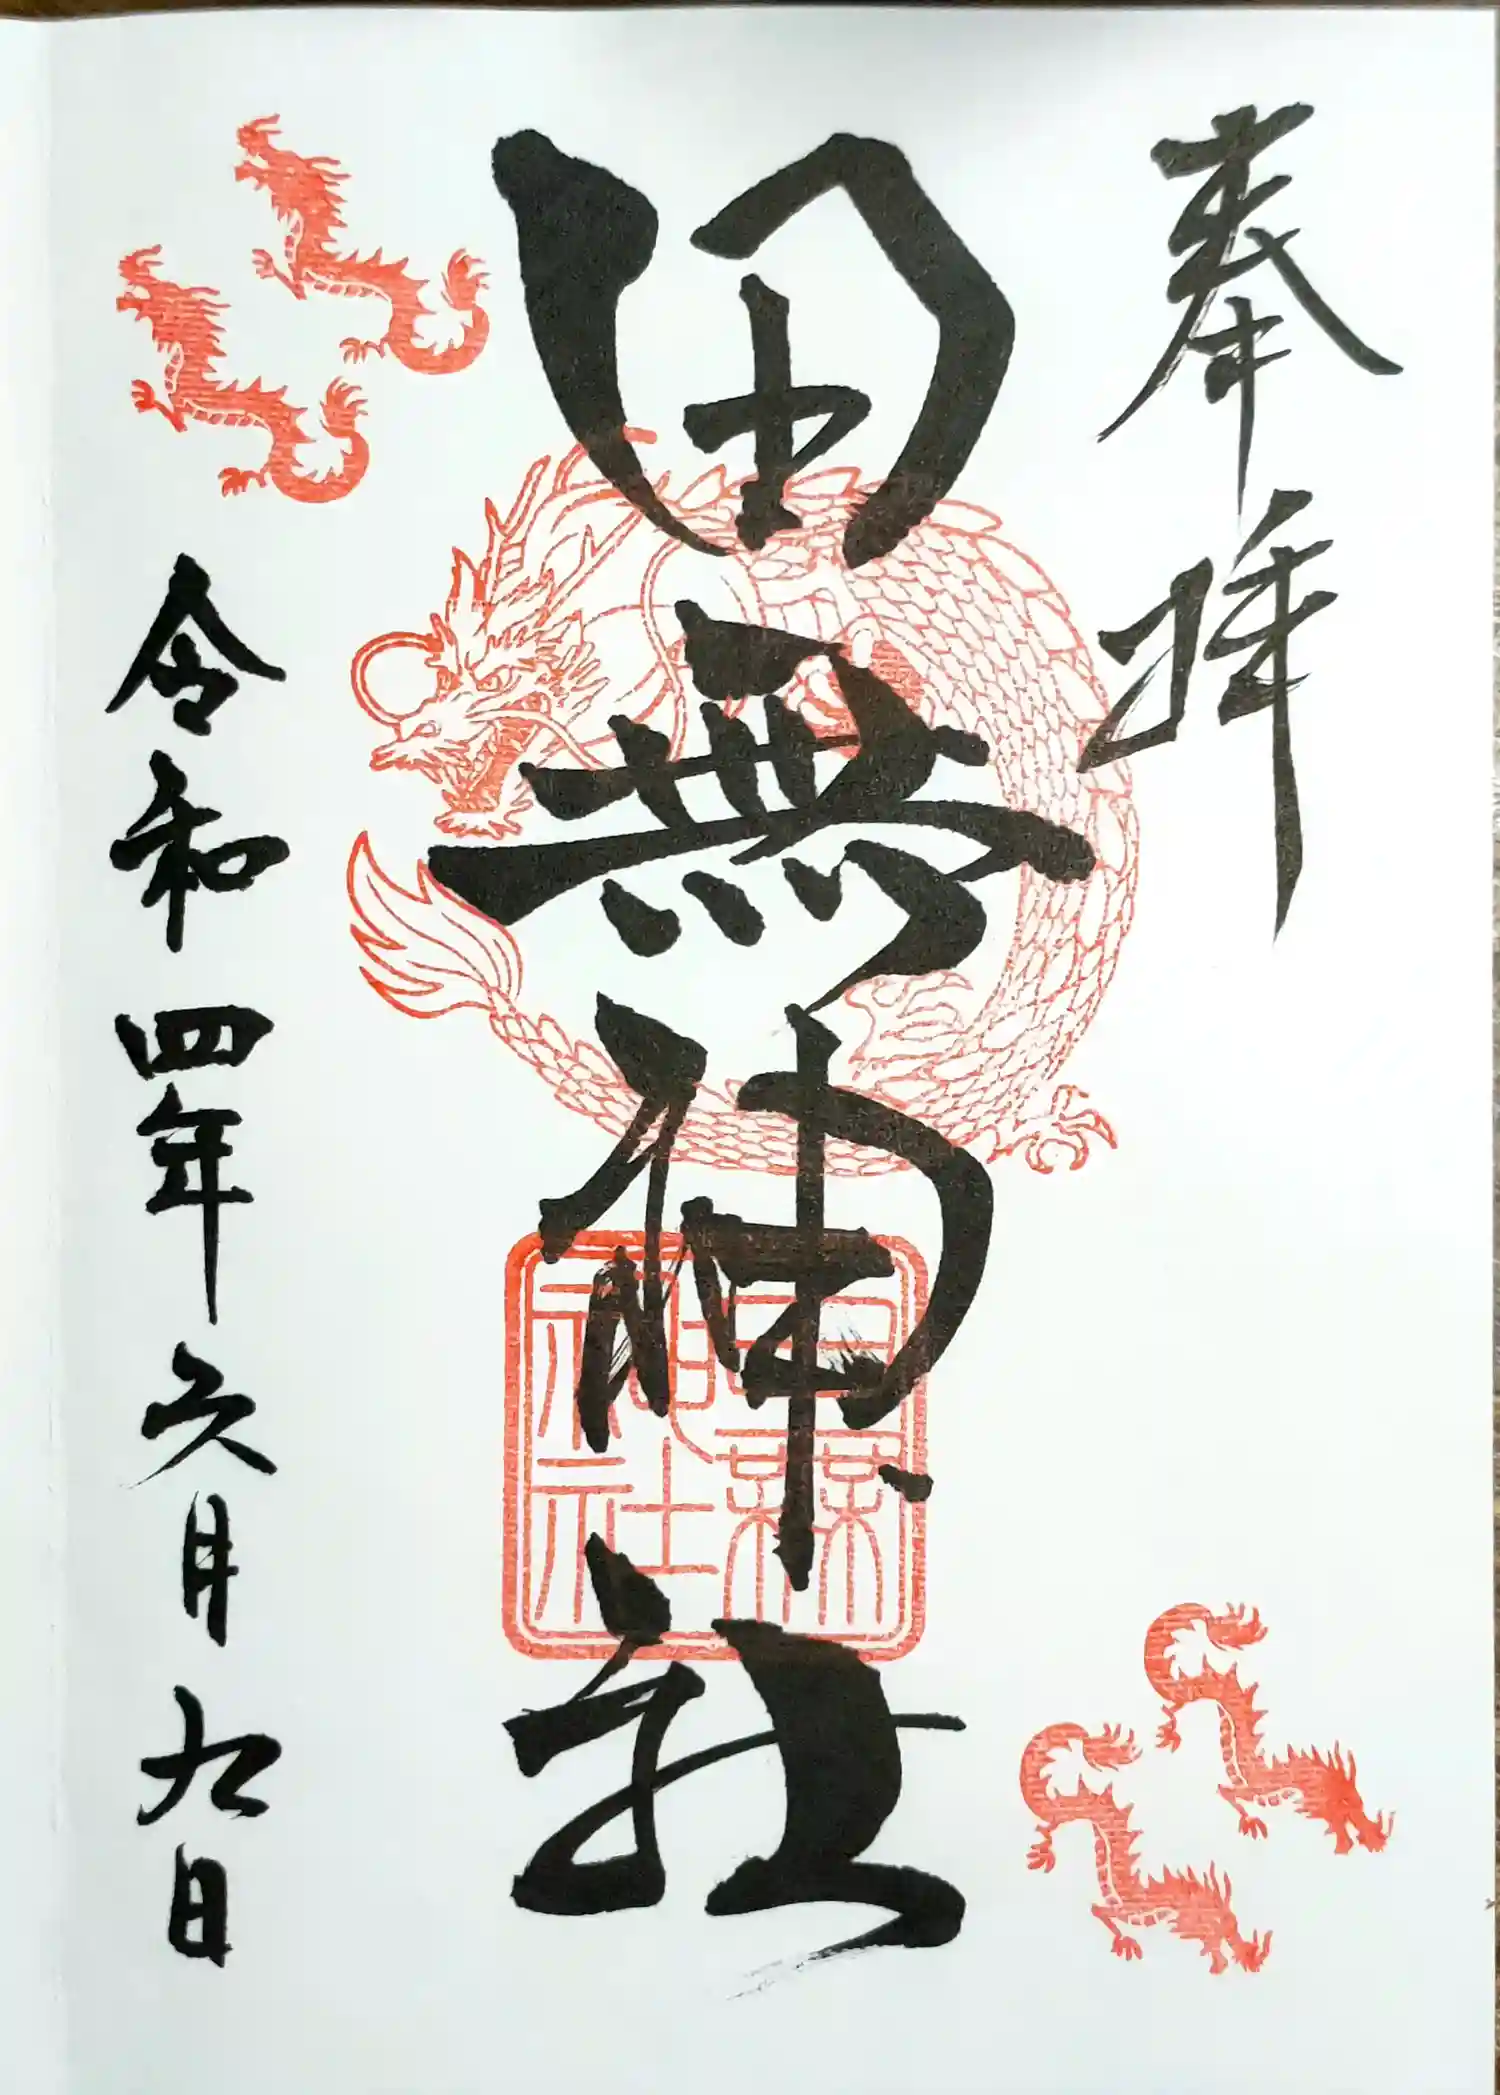 奉拝
田無神社
田無神社
令和四年六月九日